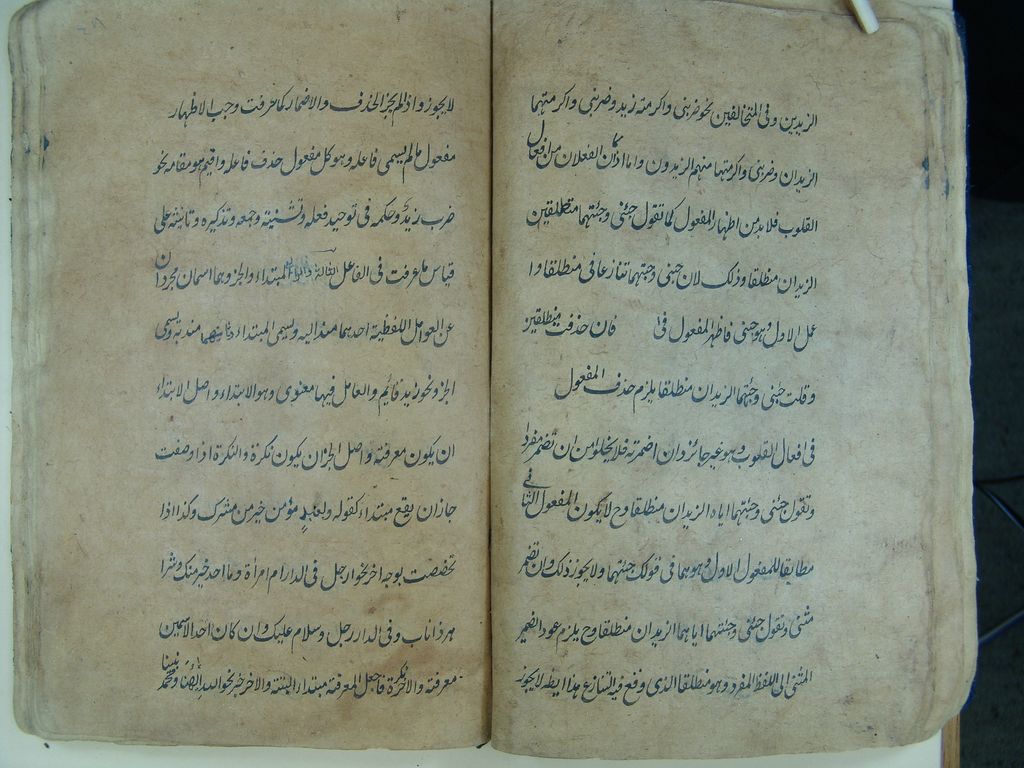 الزيدين وفى المتخالفين نحو ضربنى واكرمته زيد وضربنى واكرمتهما
الزيدان وضربنى واكرمتها منهم الزيدون واما اذا كان الفعلان من افعال
القلوب فلا بد من اظهار المفعول كما تقول حسبنى وحسبتهما منطلقين
الزيدان منطلقا وذلك لان حسبنى وحسبتهما تنازعا فى منطلقا وا
عمل الاول وهو حسبنى فاظهر المفعول فى فان حذفت منطلقين
وقلت حسبنى وحسبتهما الزيدان منطلقا يلزم حذف المفعول
فى افعال القلوب وهو غير جائز وان اضمرته فلا يخلوا من ان تضمر مفردا
وتقول حسبنى وحسبتهما اياه الزيدان منطلقا وح لا يكون المفعول الثانى
مطابقا للمفعول الاول وهو هما فى قولك حسبتهما ولا يجوز ذلك وان تضمر
مثنى وتقول حسبنى وحسبتهما اياهما الزيدان منطلقا وح يلزم عود الضمير
المثنى الى اللفظ المفرد وهو منطلقا الذى وقع فيه التنازع هذا ايضا لا يجوز
لا يجوز واذا لم يجز الحذف والاضمار كما عرفت وجب الاظهار
مفعول ما لم يسمى فاعله وهو كل مفعول حذف فاعله واقيم هو مقامه نحو
ضرب زيد وحكمه فى توحيد فعله وتثنيته وجمعه وتذكيره وتانيثه على
قياس ما عرفت فى الفاعل الثالث والرابع المبتداء والخبر وهما اسمان مجردان
عن العوامل اللفظية احدهما مسند اليه ويسمى المبتداء وثانيهما مسند به ويسمى
الخبر نحو زيد قائم والعامل فيهما معنوى وهو الابتداء واصل الابتداء
ان يكون معرفته واصل الخبر ان يكون نكرة والنكرة اذا وصفت
جاز ان يقع مبتداء كقوله ولعبد مؤمن خير من مشرك وكذا اذا
تخصصت بوجه اخر نحو ارجل فى الدار ام امراة وما احد خير منك وشر ا
هر ذا ناب وفى الدار رجل وسلام عليك وان كان احد الاسمين
معرفته والاخر نكرة فاجعل المعرفة مبتداء البتة والاخر خبر نحو الله الهنا ومحمد نبينا